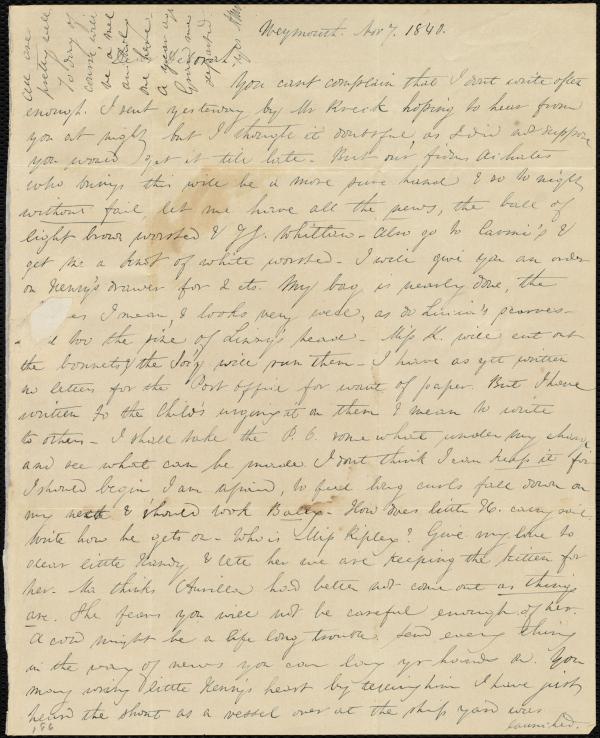 Weymouth. Nov 7. 1840.
Deborah,
You cant complain that I dont write often
enough. I sent yesterday by Mr hoping to hear from
you at night but I thought it doubtful as I did not suppose
you would get it till late - But our fidus Achates
who brings this will be a more sure hand & so to night
without fail let me have all the news, the ball of
light brown worsted & J. G. Whittier - Also go to &
get me a knot of white worsted - I will give you an order
on Henry's drawer for 2 cts. My bag is nearly done, the
es I mean, & looks very well, as do Lucia's scarves -
too the size of Linny's head - Miss K. will cut out
the bonnets & the Soc'y will run them - I have as yet written
no letters for the Post office for want of paper. But I have
written to the Childs urging it on them & mean to write
to others - I shall take the P. O. somewhat under my charge
and see what can be made. I dont think I can keep it for
I should begin, I am afraid, to feel long curls fall down on
my neck & should look Bailey - How does little H. carry sail.
Write how he gets on - Who is Miss Ripley? Give my love to
dear little & tell her we are keeping the kitten for
her. Ma thinks Aurilla had better not come out as things
are. She fears you will not be careful enough of her.
A cold might be a life long trouble. Send every thing
in the way of news you can lay yr hands on. You
may wring little Henry's heart by telling him I have just
heard the shout as a vessel over at the ship yard was
launched.
All are
pretty well
To day of
course will
be a mel
ancholy
one here
A year ago
Grand ma
departed.